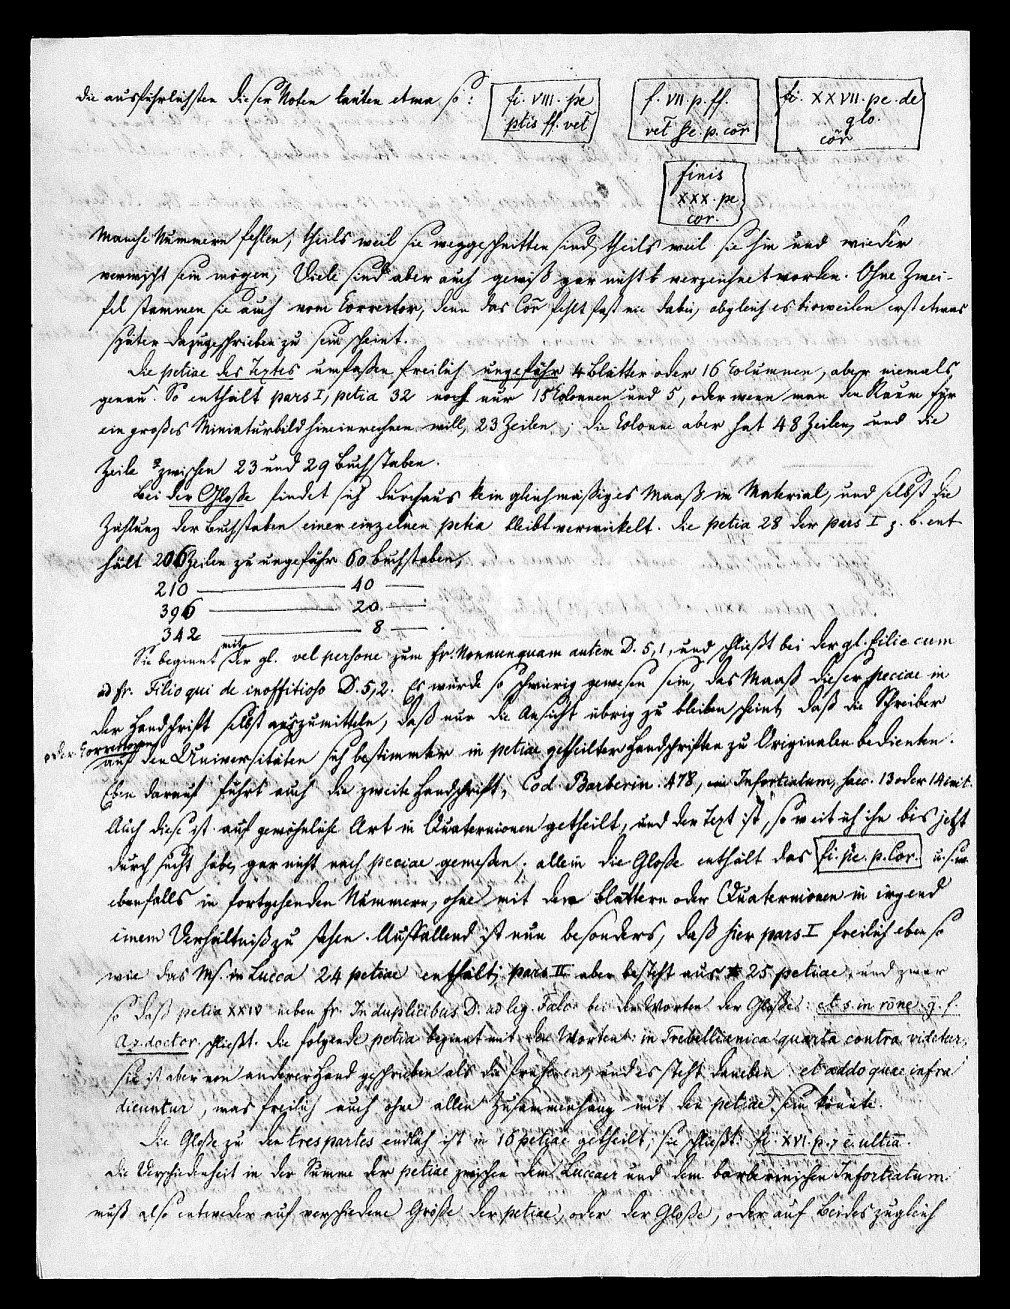 die ausführlichsten dieser Noten lauten etwa so:
fi. VIII. pe
ptis ff. vet
f. VII. p. ff.
vet se. p. cor
fi. XXVII. pe. de
glo.
cor
finis
XXX. pe
cor.
Manche Nummern fehlen, theils weil sie weggeschnitten sind, theils weil sie hin und wieder
verwischt sein mögen; Viele sind aber auch gewiß gar nicht verzeichnet worden. Ohne Zwei-
fel stammen sie auch vom Corrector, denn das Cor fehlt fast nie dabei, obgleich es bisweilen erst etwas
später dazugeschrieben zu sein scheint.
Die petiae des Textes umfaßen freilich ungefähr 4 Blätter oder 16 Columnen, aber niemals
genau. So enthält pars I, petia 32 noch nur 15 Colonnen und 5, oder wenn man den Raum für
ein großes Miniaturbild hineinrechnen will, 23 Zeilen; die Colonne aber hat 48 Zeilen, und die
Zeile zwischen 23 und 29 Buchstaben.
Bei der Gloße findet sich durchaus kein gleichmäßiges Maaß im Material, und selbst die
Zählung der Buchstaben einer einzelnen petia bleibt verwickelt. Die petia 28 der pars I z. b. ent-
hält 206 Zeilen zu ungefähr 60 Buchstaben,
210 ——— 40 ——
396 ——— 20 ——
342 ——— 8 ——.
Sie beginnt mit der gl. vel persone zum fr. Nonnunquam autem D. 5,1, und schließt bei der gl. filie cum
ad fr. Filio qui de inoffitioso D. 5,2. Es würde so schwierig gewesen sein, das Maaß dieser peciae in
der Handschrift selbst auszumitteln, daß nur die Ansicht übrig zu bleiben scheint, daß die Schreiber
oder Correctoren
auf den Universitäten sich bestimmter in petiae getheilter Handschriften zu Originalen bedienten.
Eben darauf führt auch die zweite Handschrift, Cod. Barberin. 478, ein Infortiatum, saec. 13 oder 14 init.
Auch diese ist auf gewöhnliche Art in Quaternionen getheilt, und der Text ist, so weit ich ihn bis jetzt
durchsucht habe, gar nicht nach peciae gemeßen; allein die Gloße enthält das fi. pe. p. Cor. u. s. w.
ebenfalls in fortgehenden Nummern, ohne mit den Blättern oder Quaternionen in irgend
einem Verhältniß zu stehen. Auffallend ist nun besonders, daß hier pars I freilich eben so
wie das Ms. in Lucca 24 petiae enthält, pars II aber besteht aus 25 petiae, und zwar
so daß petia XXIV neben fr. In duplicibus D. ad leg. Falc. bei den Worten der Gloße: et s. in rone q. f.
Az. doctor. schließt. Die folgende petia beginnt mit den Worten: in Trebellianica quarta contra videtur,
sie ist aber von anderer Hand geschrieben als die früheren, und es steht daneben: et addo quae infra
dicuntur, was freilich auch ohne allen Zusammenhang mit den petiae sein könnte.
Die Gloße zu den tres partes endlich ist in 16 petiae getheilt; sie schließt: fi. XVI. p. 7 e. ultia.
Die Verschiedenheit in der Summe der petiae zwischen dem Luccaer und dem barberinischen Infortiatum
muß also entweder auf verschiedene Größe der petiae, oder der Gloße, oder auf Beides zugleich